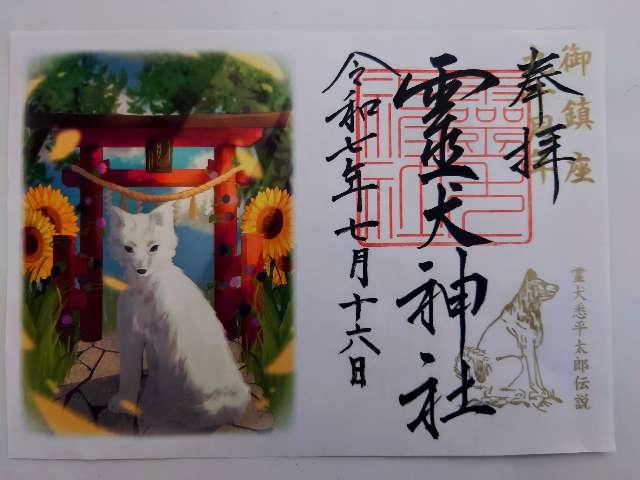 奉拝
御鎮座
靈犬神社
令和七年七月十六日
霊犬悉平太郎伝説